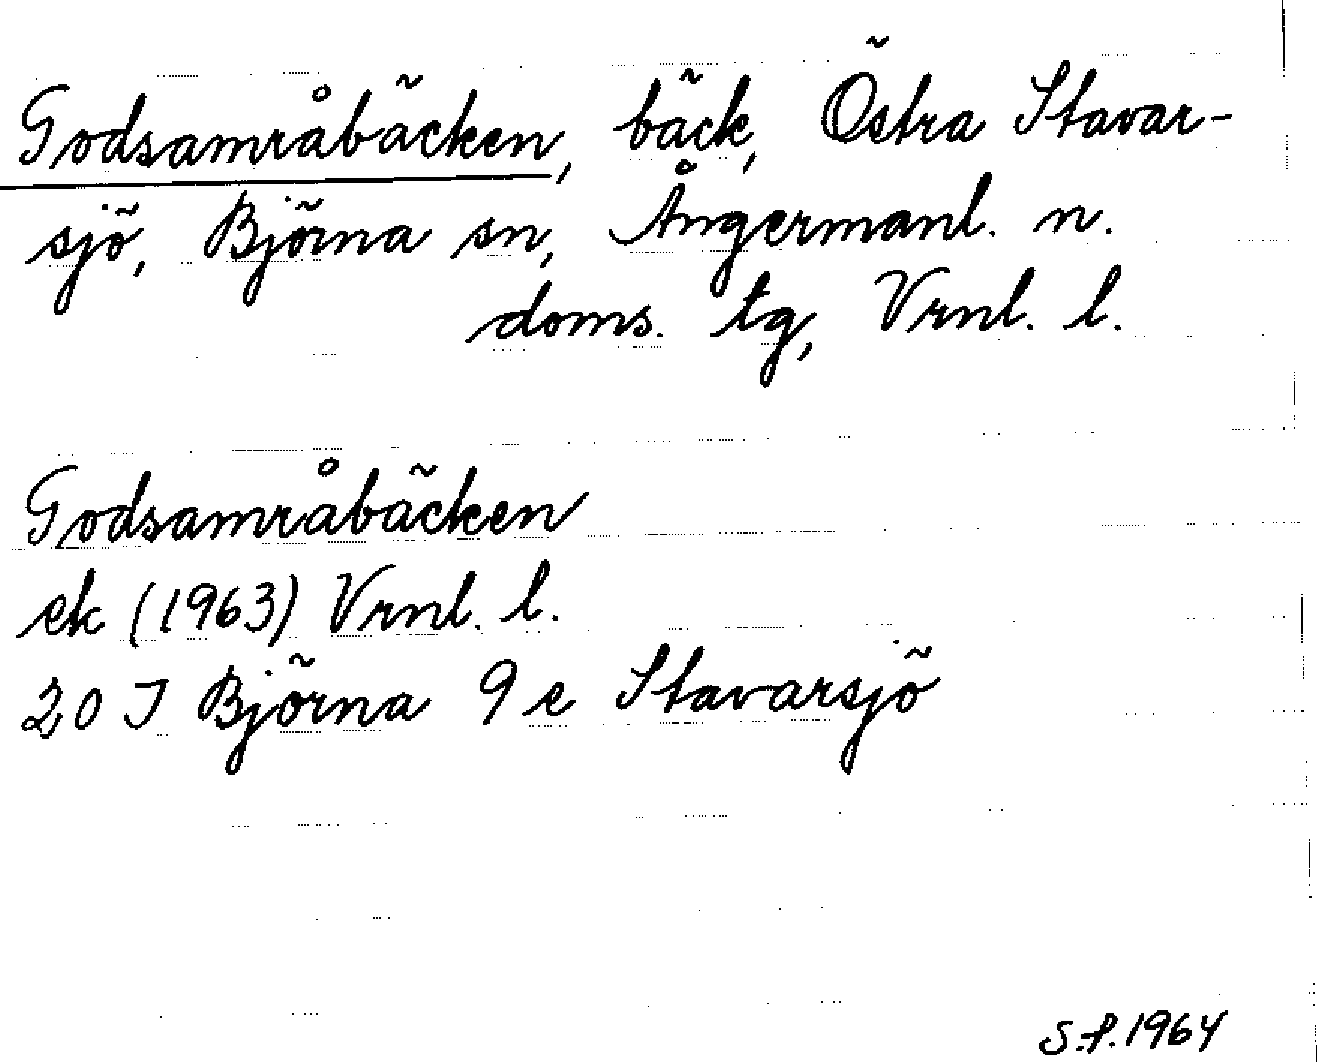 Godsamråbäcken, bäck, Östra Stavar-
sjö, Björna sn, Ångermanl. n.
doms. tg, Vrnl. l.
Godsamråbäcken
ek (1963) Vrnl. l.
20 J Björna 9 e Stavarsjö
S.P. 1964